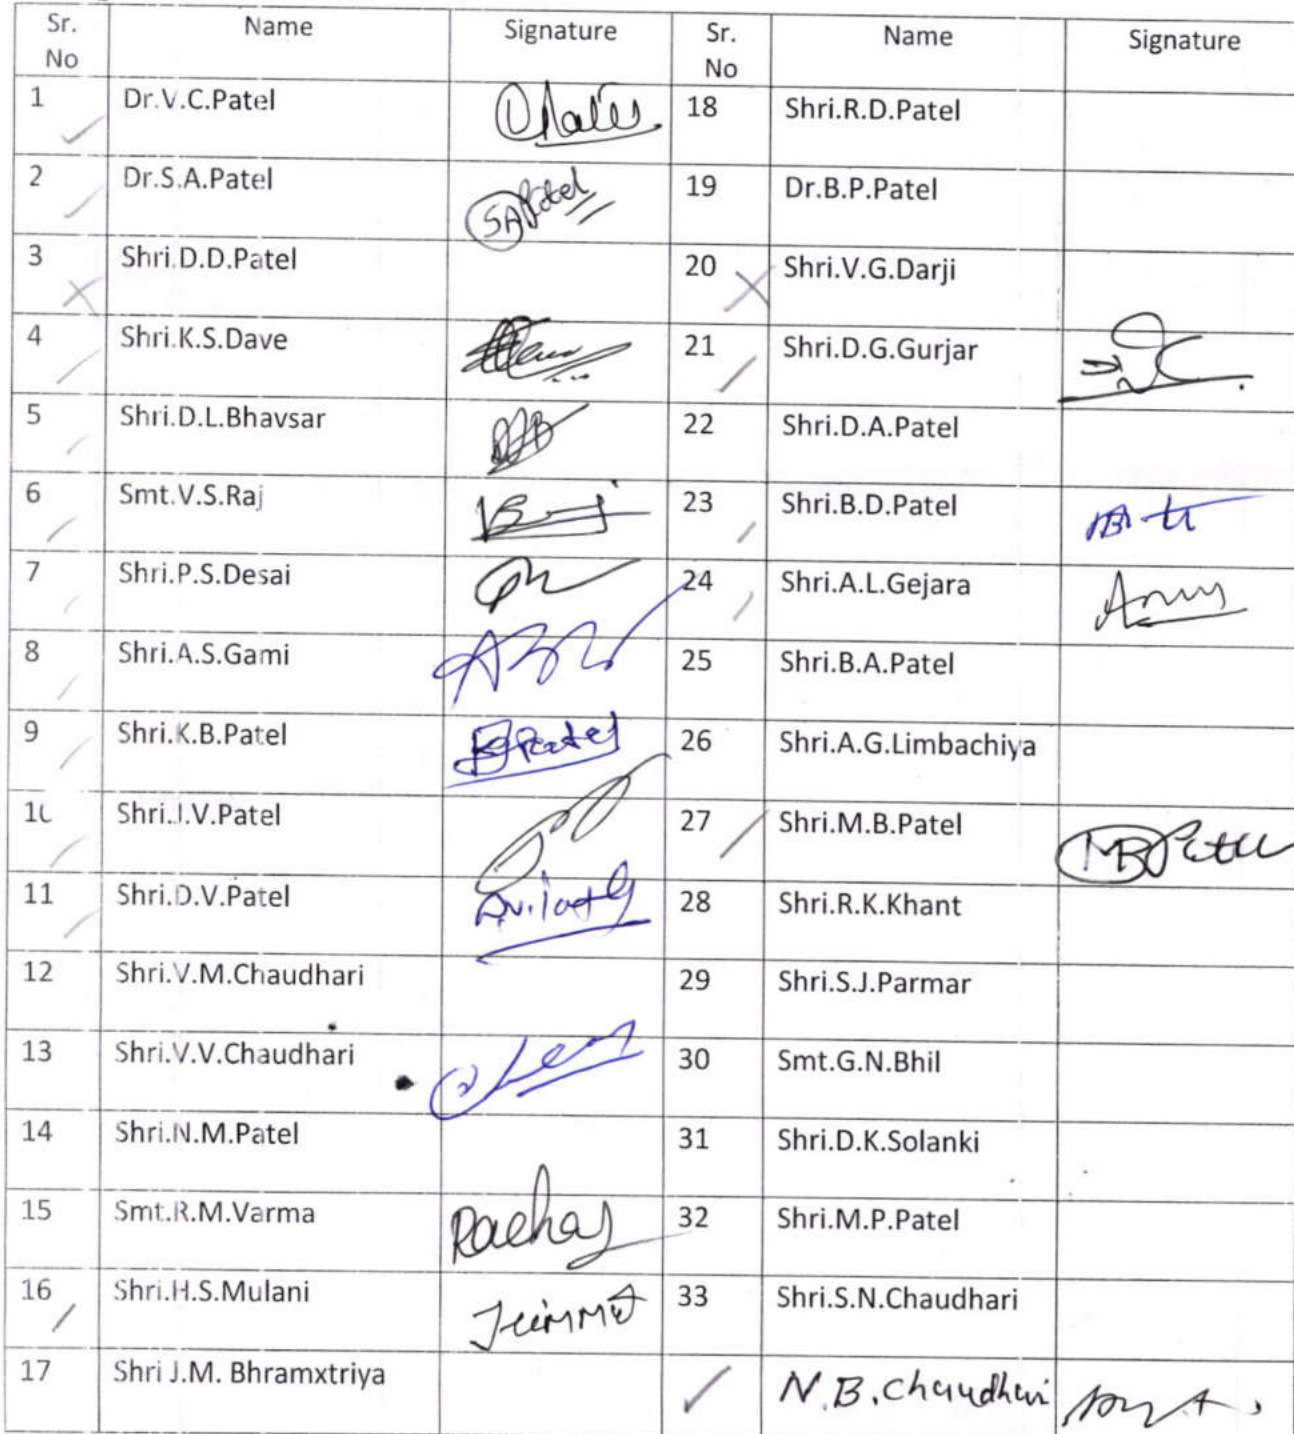 Sr. No Name Signature Sr. No Name Signature
1 Dr.V.C.Patel 18 Shri.R.D.Patel
2 Dr.S.A.Patel SAPatel 19 Dr.B.P.Patel
3 Shri.D.D.Patel 20 Shri.V.G.Darji
4 Shri.K.S.Dave 21 Shri.D.G.Gurjar
5 Shri.D.L.Bhavsar 22 Shri.D.A.Patel
6 Smt.V.S.Raj 23 Shri.B.D.Patel
7 Shri.P.S.Desai 24 Shri.A.L.Gejara
8 Shri.A.S.Gami 25 Shri.B.A.Patel
9 Shri.K.B.Patel 26 Shri.A.G.Limbachiya
10 Shri.J.V.Patel 27 Shri.M.B.Patel
11 Shri.D.V.Patel 28 Shri.R.K.Khant
12 Shri.V.M.Chaudhari 29 Shri.S.J.Parmar
13 Shri.V.V.Chaudhari 30 Smt.G.N.Bhil
14 Shri.N.M.Patel 31 Shri.D.K.Solanki
15 Smt.R.M.Varma 32 Shri.M.P.Patel
16 Shri.H.S.Mulani 33 Shri.S.N.Chaudhari
17 Shri J.M. Bhramxtriya N.B.Chaudhari